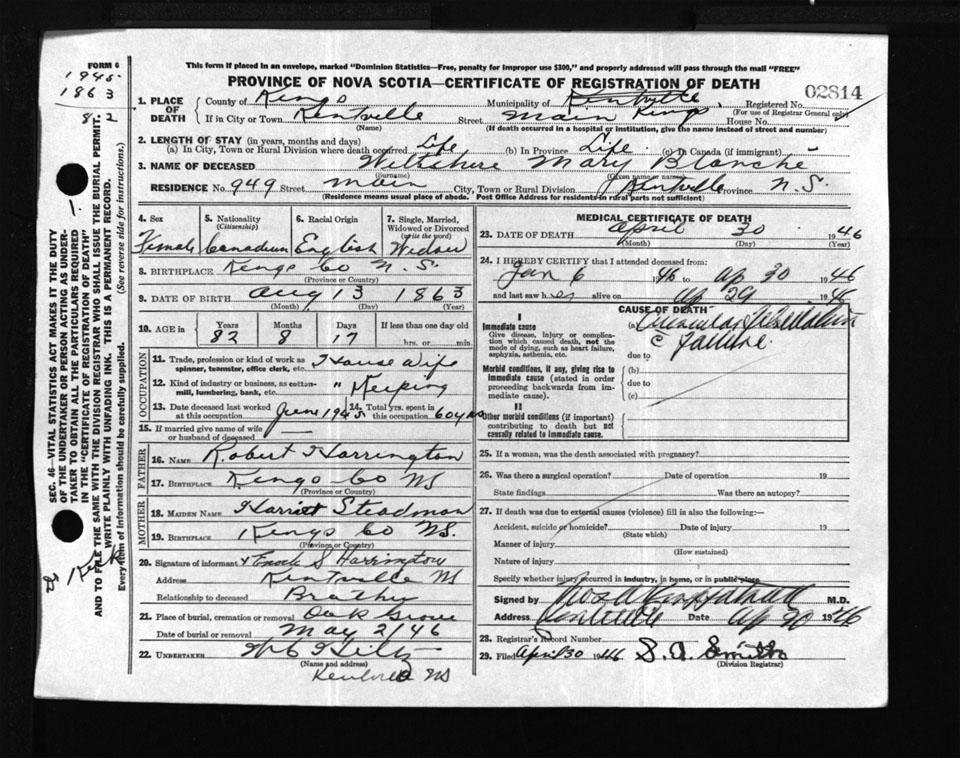 FORM 6
This form if placed in an envelope, marked "Dominion Statistics—Free, penalty for improper use $300," and properly addressed will pass through the mail "FREE"
PROVINCE OF NOVA SCOTIA—CERTIFICATE OF REGISTRATION OF DEATH
1945
1863
82
SEC. 46—VITAL STATISTICS ACT MAKES IT THE DUTY
OF THE UNDERTAKER OR PERSON ACTING AS UNDER-
TAKER TO OBTAIN ALL THE PARTICULARS REQUIRED
IN THE "CERTIFICATE OF REGISTRATION OF DEATH"
AND TO FILE THE SAME WITH THE DIVISION REGISTRAR WHO SHALL ISSUE THE BURIAL PERMIT.
WRITE PLAINLY WITH UNFADING INK. THIS IS A PERMANENT RECORD.
Every item of information should be carefully supplied. (See reverse side for instructions.)
1. PLACE OF DEATH County of Kings Municipality of Kentville Kings Registered No. 02814
(For use of Registrar General only)
If in City or Town Kentville Street Main House No.
(Name) (If death occurred in a hospital or institution, give the name instead of street and number)
2. LENGTH OF STAY (in years, months and days)
(a) In City, Town or Rural Division where death occurred Life (b) In Province Life (c) In Canada (if immigrant)
3. NAME OF DECEASED Wiltshire Mary Blanche
(Surname) (Given name or names)
RESIDENCE No. 949 Street Main City, Town or Rural Division Kentville Province N.S.
(Residence means usual place of abode. Post Office Address for residents in rural parts not sufficient)
4. Sex Female
5. Nationality (Citizenship) Canadian
6. Racial Origin English
7. Single, Married, Widowed or Divorced (write the word) Widow
8. BIRTHPLACE Kings Co N.S.
(Province or Country)
9. DATE OF BIRTH Aug 13 1863
(Month) (Day) (Year)
10. AGE in Years 82 Months 8 Days 17 If less than one day old hrs. or min.
OCCUPATION
11. Trade, profession or kind of work as spinner, teamster, office clerk, etc. House Wife
12. Kind of industry or business, as cotton-mill, lumbering, bank, etc. " Keeping
13. Date deceased last worked at this occupation June 1945 14. Total yrs. spent in this occupation 60 yrs
15. If married give name of wife or husband of deceased —
FATHER
16. NAME Robert Harrington
17. BIRTHPLACE Kings Co NS
(Province or Country)
MOTHER
18. MAIDEN NAME Harriet Steadman
19. BIRTHPLACE Kings Co NS.
(Province or Country)
20. Signature of informant x Enoch S Harrington
Address Kentville NS
Relationship to deceased Brother
21. Place of burial, cremation or removal Oak Grove
Date of burial or removal May 2/46
22. UNDERTAKER Hiltz
(Name and address)
Kentville NS
MEDICAL CERTIFICATE OF DEATH
23. DATE OF DEATH April 30 1946
(Month) (Day) (Year)
24. I HEREBY CERTIFY that I attended deceased from:
Jan 6 1946 to Ap 30 1946
and last saw her alive on Ap 29 1946
CAUSE OF DEATH
I
Immediate cause
Give disease, injury or complication which caused death, not the mode of dying, such as heart failure, asphyxia, asthenia, etc.
(a) Auricular fibrillation
c failure.
due to
Morbid conditions, if any, giving rise to immediate cause (stated in order proceeding backwards from immediate cause).
(b)
due to
(c)
II
Other morbid conditions (if important) contributing to death but not causally related to immediate cause.
25. If a woman, was the death associated with pregnancy?
26. Was there a surgical operation? Date of operation 19
State findings Was there an autopsy?
27. If death was due to external causes (violence) fill in also the following:
Accident, suicide or homicide? Date of injury 19
(State which)
Manner of injury
(How sustained)
Nature of injury
Specify whether injury occurred in industry, in home, or in public place
Signed by M.D.
Address Kentville Date Ap 30 1946
28. Registrar's Record Number
29. Filed April 30 1946 Smith
(Division Registrar)